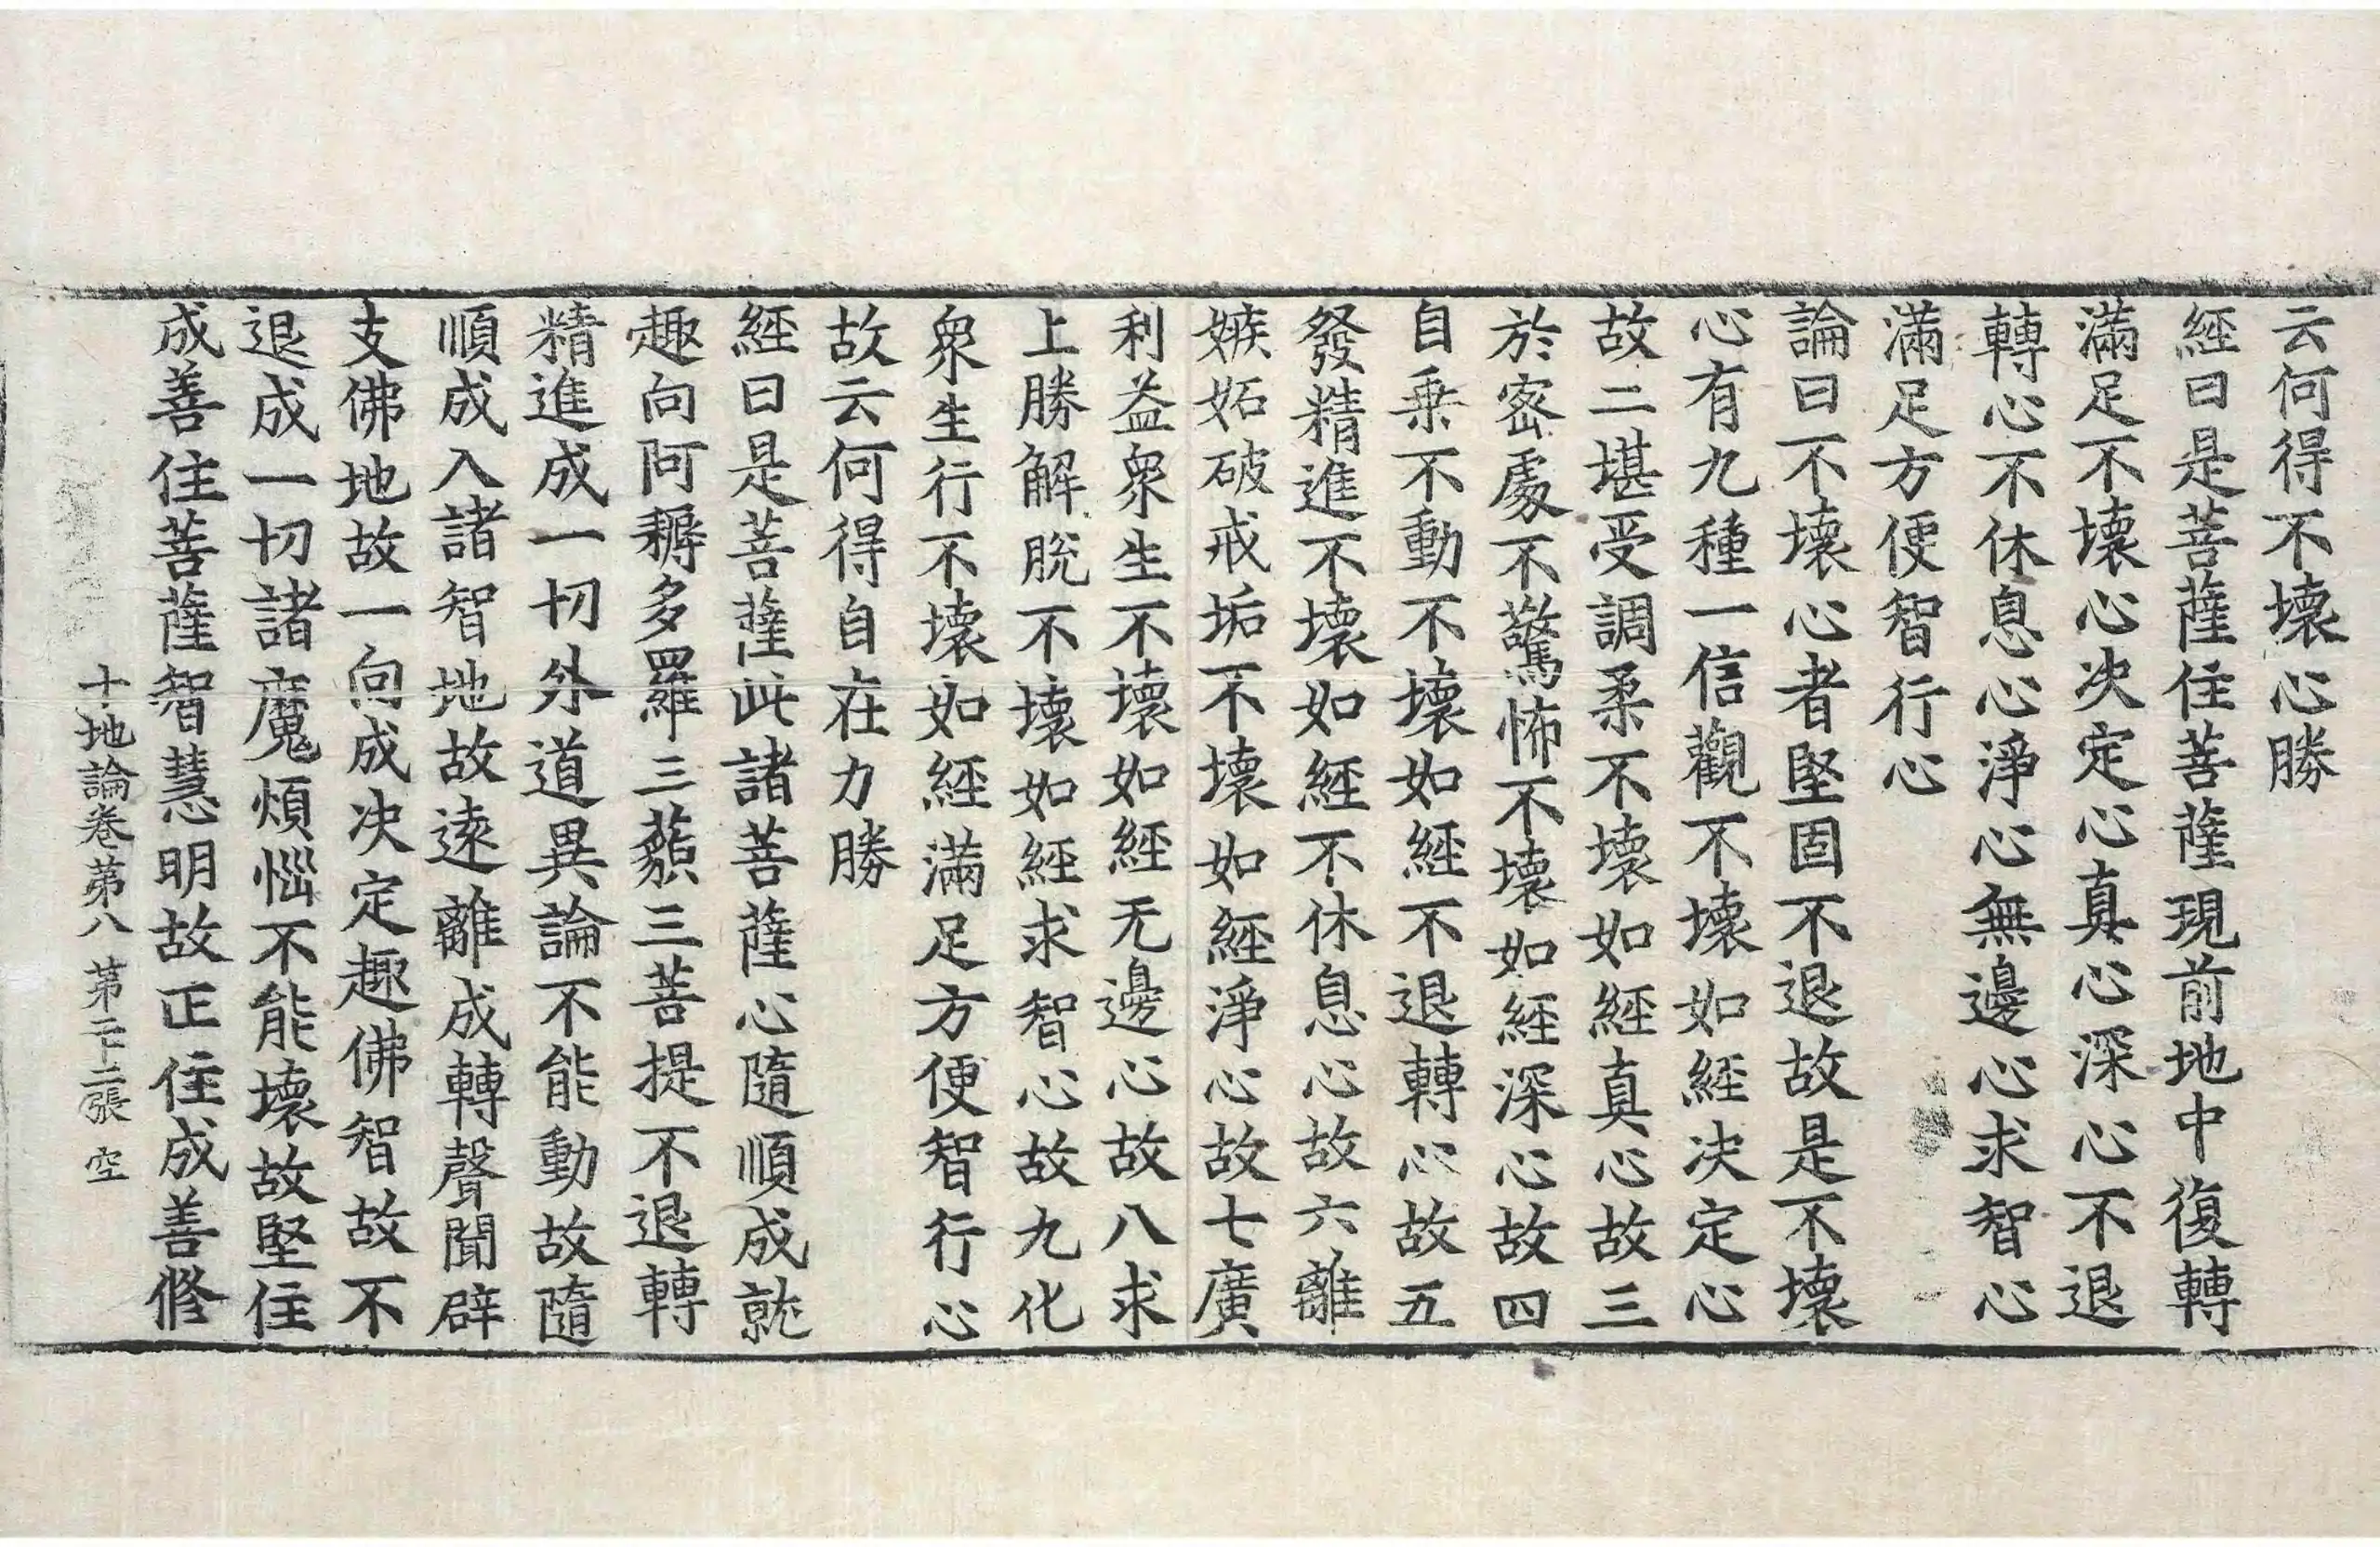 云何得不壞心勝
經曰是菩薩住菩薩現前地中復轉
滿足不壞心決定心真心深心不退
轉心不休息心淨心無邊心求智心
滿足方便智行心
論曰不壞心者堅固不退故是不壞
心有九種一信觀不壞如經決定心
故二堪受調柔不壞如經真心故三
於密處不驚怖不壞如經深心故四
自乗不動不壞如經不退轉心故五
發精進不壞如經不休息心故六離
嫉妬破戒垢不壞如經淨心故七廣
利益衆生不壞如經无邊心故八求
上勝解脫不壞如經求智心故九化
衆生行不壞如經滿足方便智行心
故云何得自在力勝
經曰是菩薩此諸菩薩心隨順成就
趣向阿耨多羅三藐三菩提不退轉
精進成一切外道異論不能動故隨
順成入諸智地故遠離成轉聲聞辟
支佛地故一向成決定趣佛智故不
退成一切諸魔煩惱不能壞故堅住
成善住菩薩智慧明故正住成善修
十地論卷苐八 苐二十二張 空